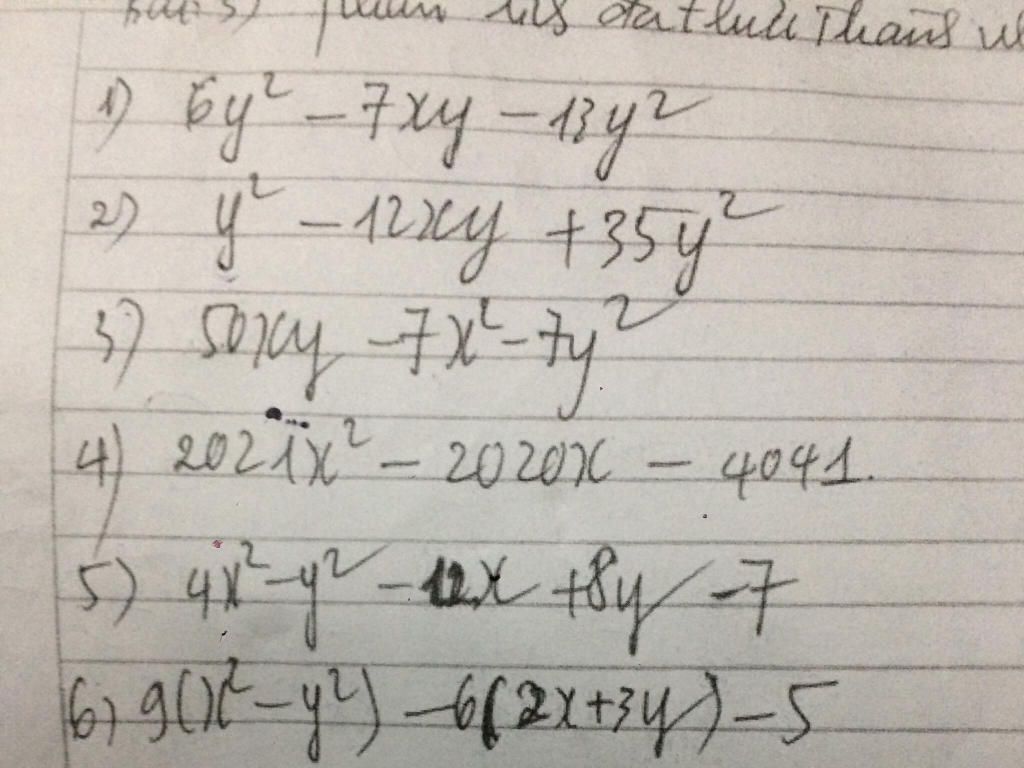 Bài 3) phân tích đa thức thành
1) 6y² - 7xy - 13y²
2) y² - 12xy + 35y²
3) 50xy - 7x² - 7y²
4) 2021x² - 2020x - 4041.
5) 4x² - y² - 12x + 8y - 7
6) 9(x² - y²) - 6(2x + 3y) - 5